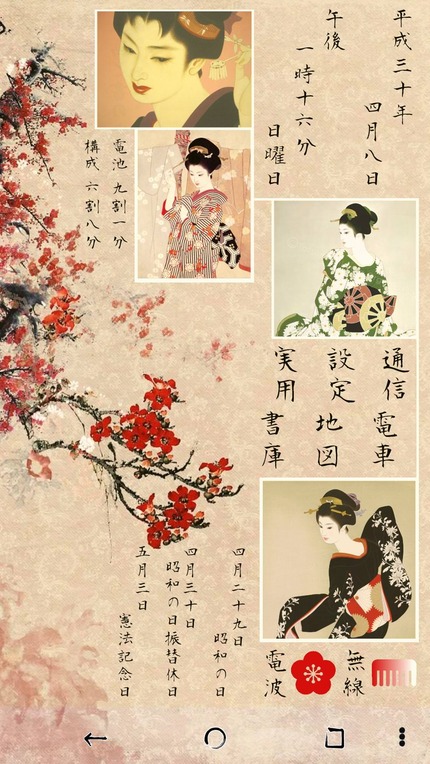 平成三十年
四月八日
午後
一時十六分
日曜日
電池 九割一分
構成 六割八分
通信
電車
設定
地図
実用
書庫
四月二十九日
昭和の日
四月三十日
昭和の日振替休日
五月三日
憲法記念日
無線
電波